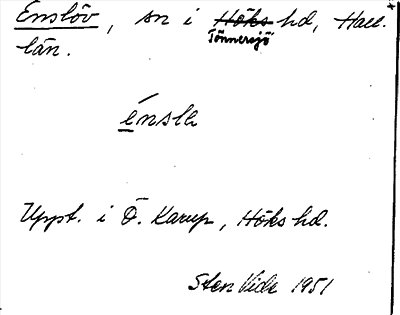 Enslöv, sn i Höks hd, Hall.
Tönnersjö
län.
énslə
Uppt. i Ö. Karup, Höks hd.
Sten Vide 1951